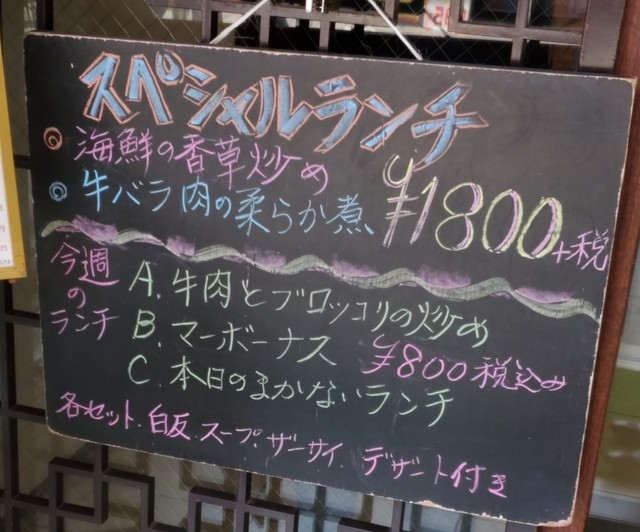 スペシャルランチ
海鮮の香草炒め
牛バラ肉の柔らか煮
¥1800+税
今週のランチ
A. 牛肉とブロッコリの炒め
B. マーボーナス
C. 本日のまかないランチ
¥800税込み
各セット、白反、スープ、ザーサイ、デザート付き